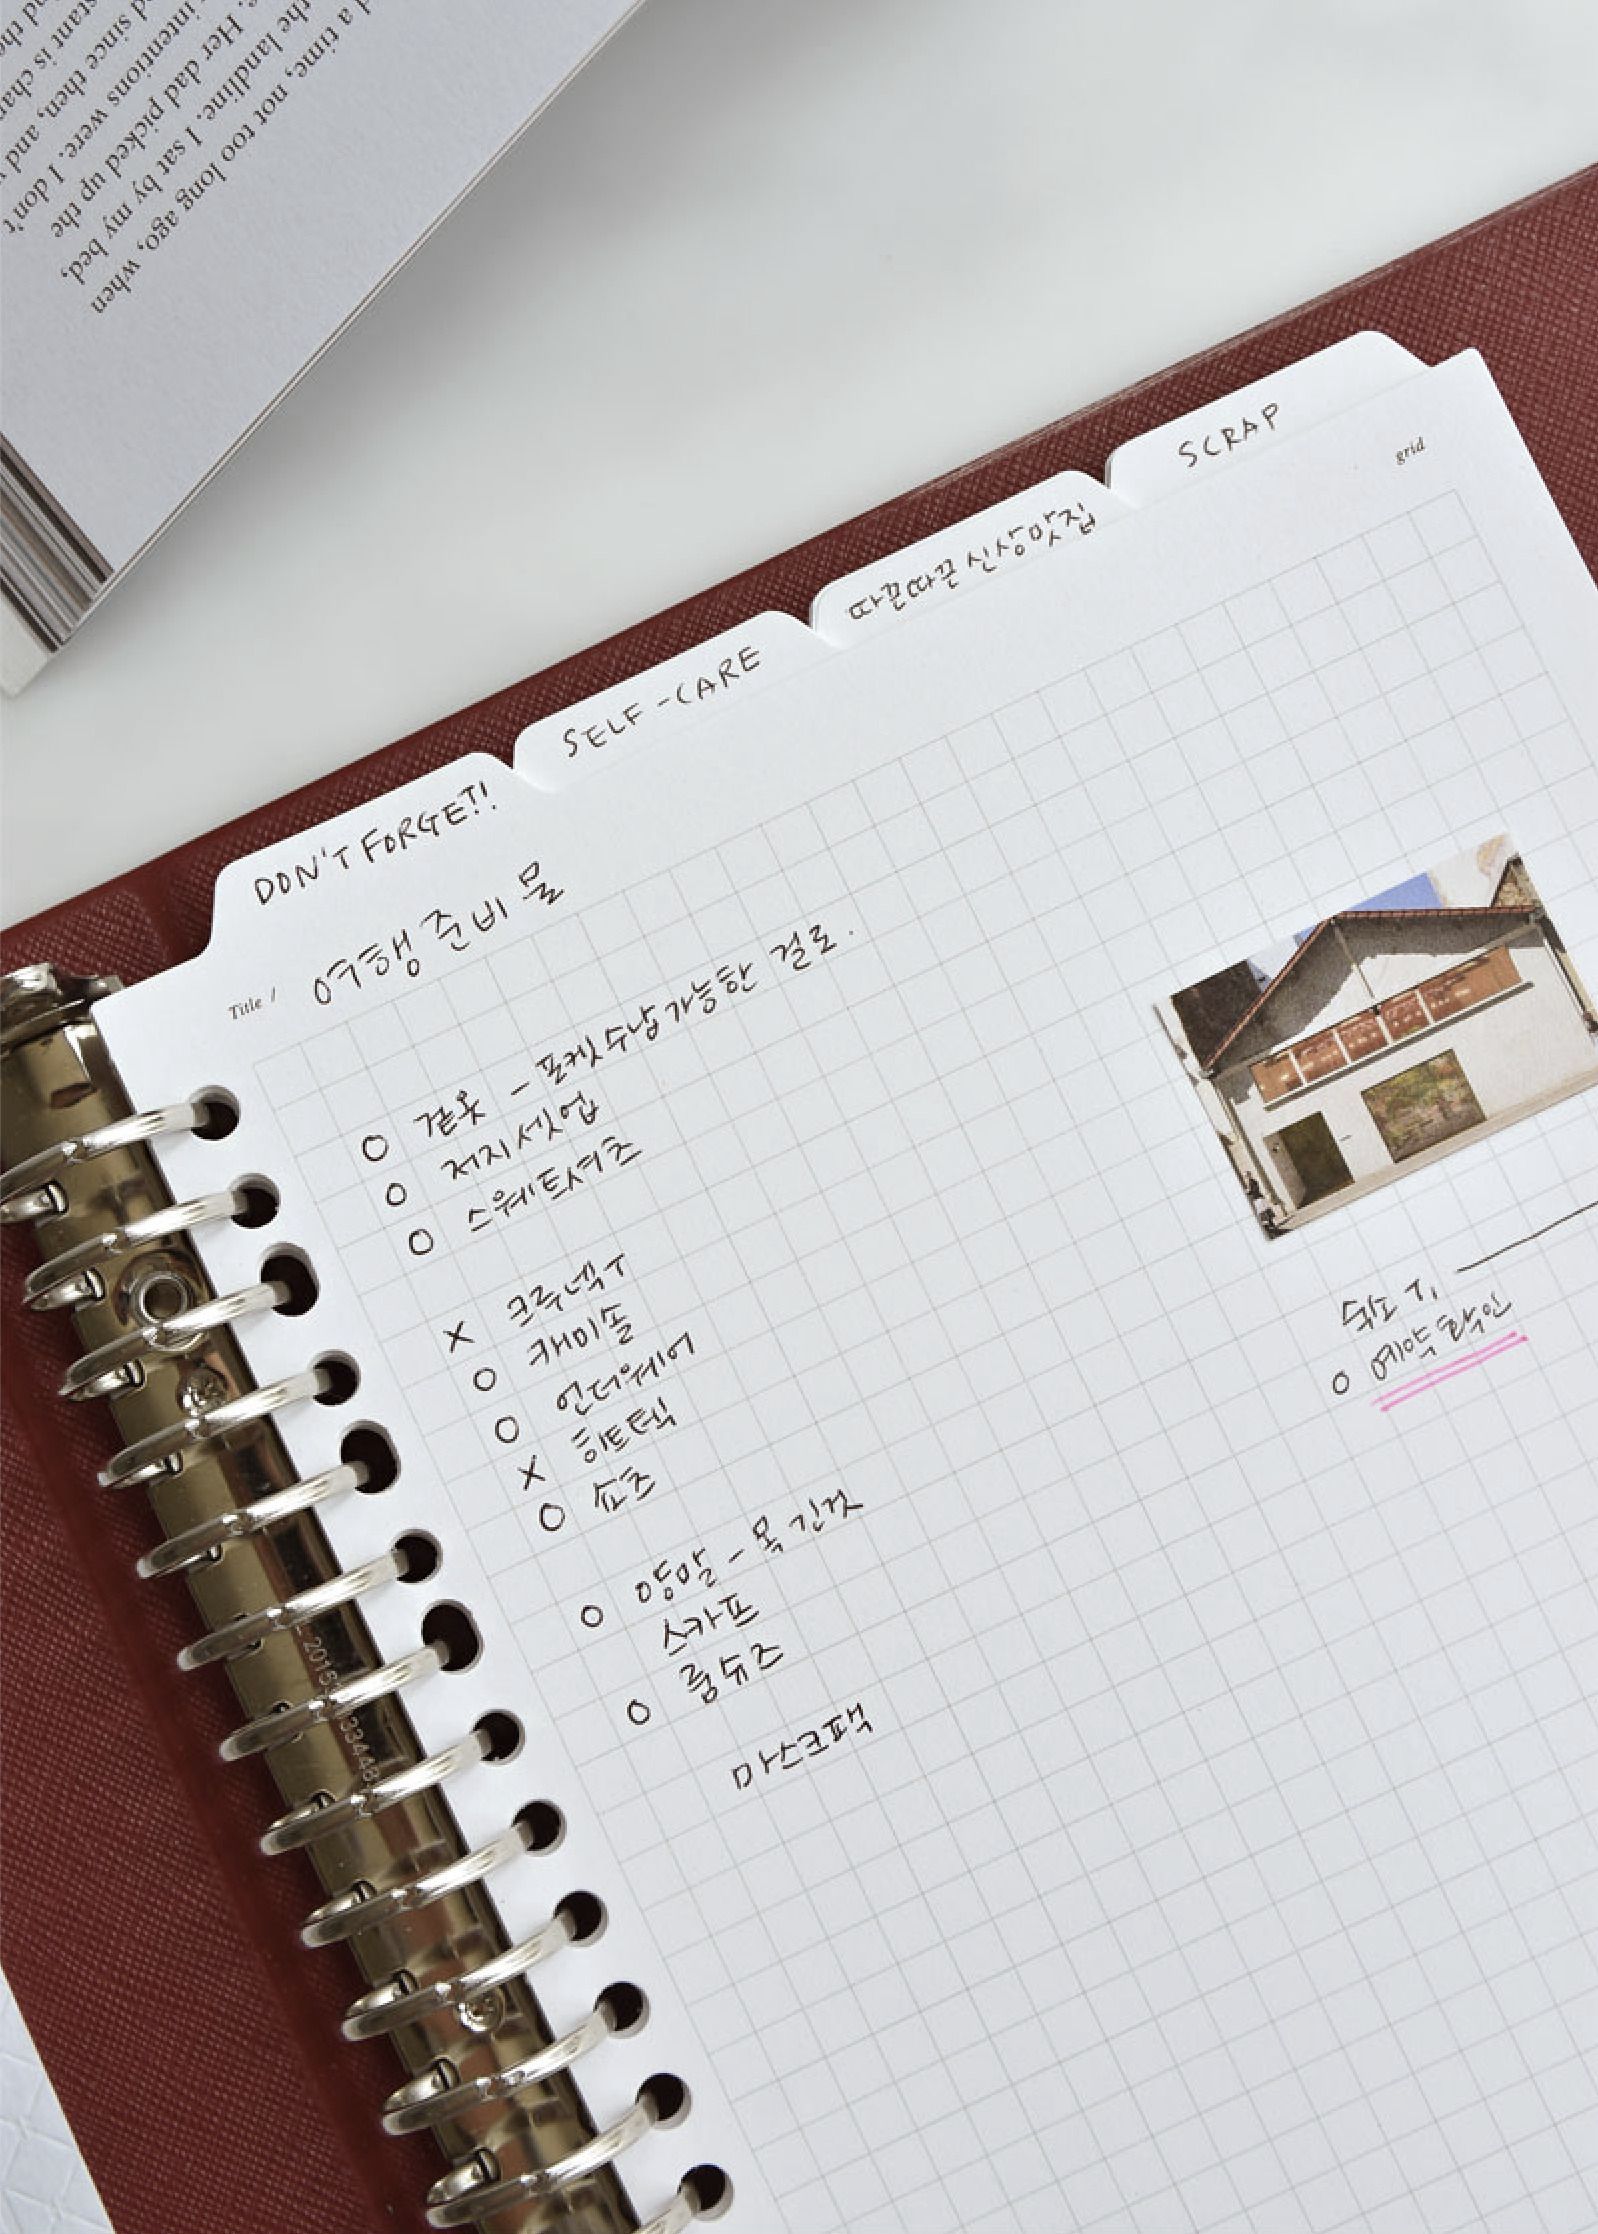 d a time, not too long ago, when
the landline. I sat by my bed,
e. Her dad picked up the
intentions were. I don't
d since then, and
stant is char
nd the
SCRAP
grid
따끈따끈 신상맛집
SELF-CARE
DON'T FORGET!!
Title / 여행 준비물
O 겉옷 - 포켓 수납 가능한 걸로.
O 저지 셋업
O 스웨트셔츠
X 크루넥 T
O 캐미솔
O 언더웨어
X 히트텍
O 쇼츠
O 양말 - 목 긴 것
스카프
O 룸슈즈
마스크팩
숙소 기,
O 예약 확인
2015
33448